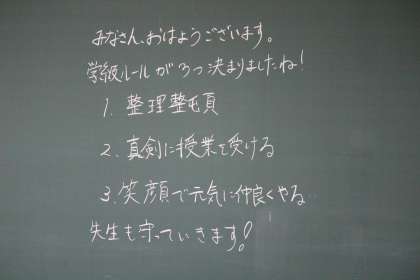 みなさん、おはようございます。
学級ルールが3つ決まりましたね!
1. 整理整頓
2. 真剣に授業を受ける
3. 笑顔で元気に仲良くやる
先生も守っていきます!